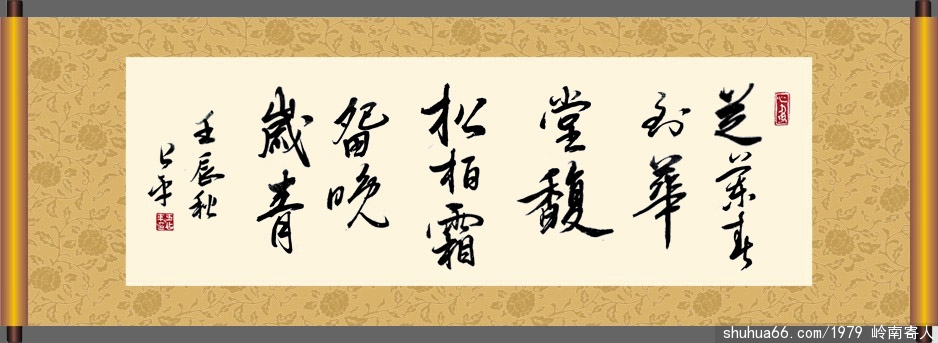 芝蘭春
到華
堂馥
松柏霜
留晚
歲青
壬辰秋
平
shuhua66.com/1979 岭南寄人